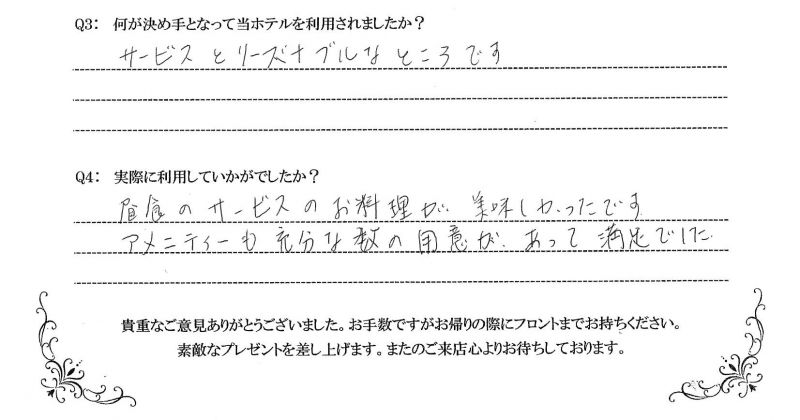 Q3： 何が決め手となって当ホテルを利用されましたか？
サービスとリーズナブルなところです
Q4： 実際に利用していかがでしたか？
昼食のサービスのお料理が美味しかったです
アメニティーも充分な数の用意があって満足でした
貴重なご意見ありがとうございました。お手数ですがお帰りの際にフロントまでお持ちください。
素敵なプレゼントを差し上げます。またのご来店心よりお待ちしております。